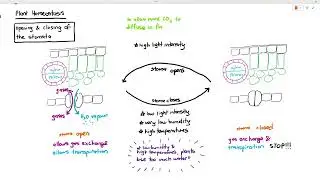 Plant Homeostasis
opening & closing of
the stomata
→ allow more CO2 to
diffuse in for
* high light intensity
stoma opens
stoma closes
* low light intensity
* very low humidity
* high temperatures
* low humidity &
high temperatures, plants
lose too much water!
gases
gases
H2O vapour
stoma open
allows gas exchange
allows transpiration
stoma closed
gas exchange &
transpiration STOP!!!